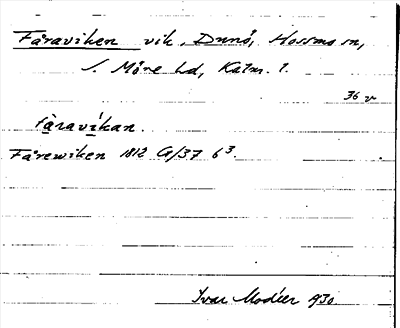 Fåraviken vik, Dunö, Hossmo sn,
S. Möre hd, Kalm. l.
36 v
fàravíkan.
Fårewiken 1812 G/37 6³.
Ivar Modéer 930